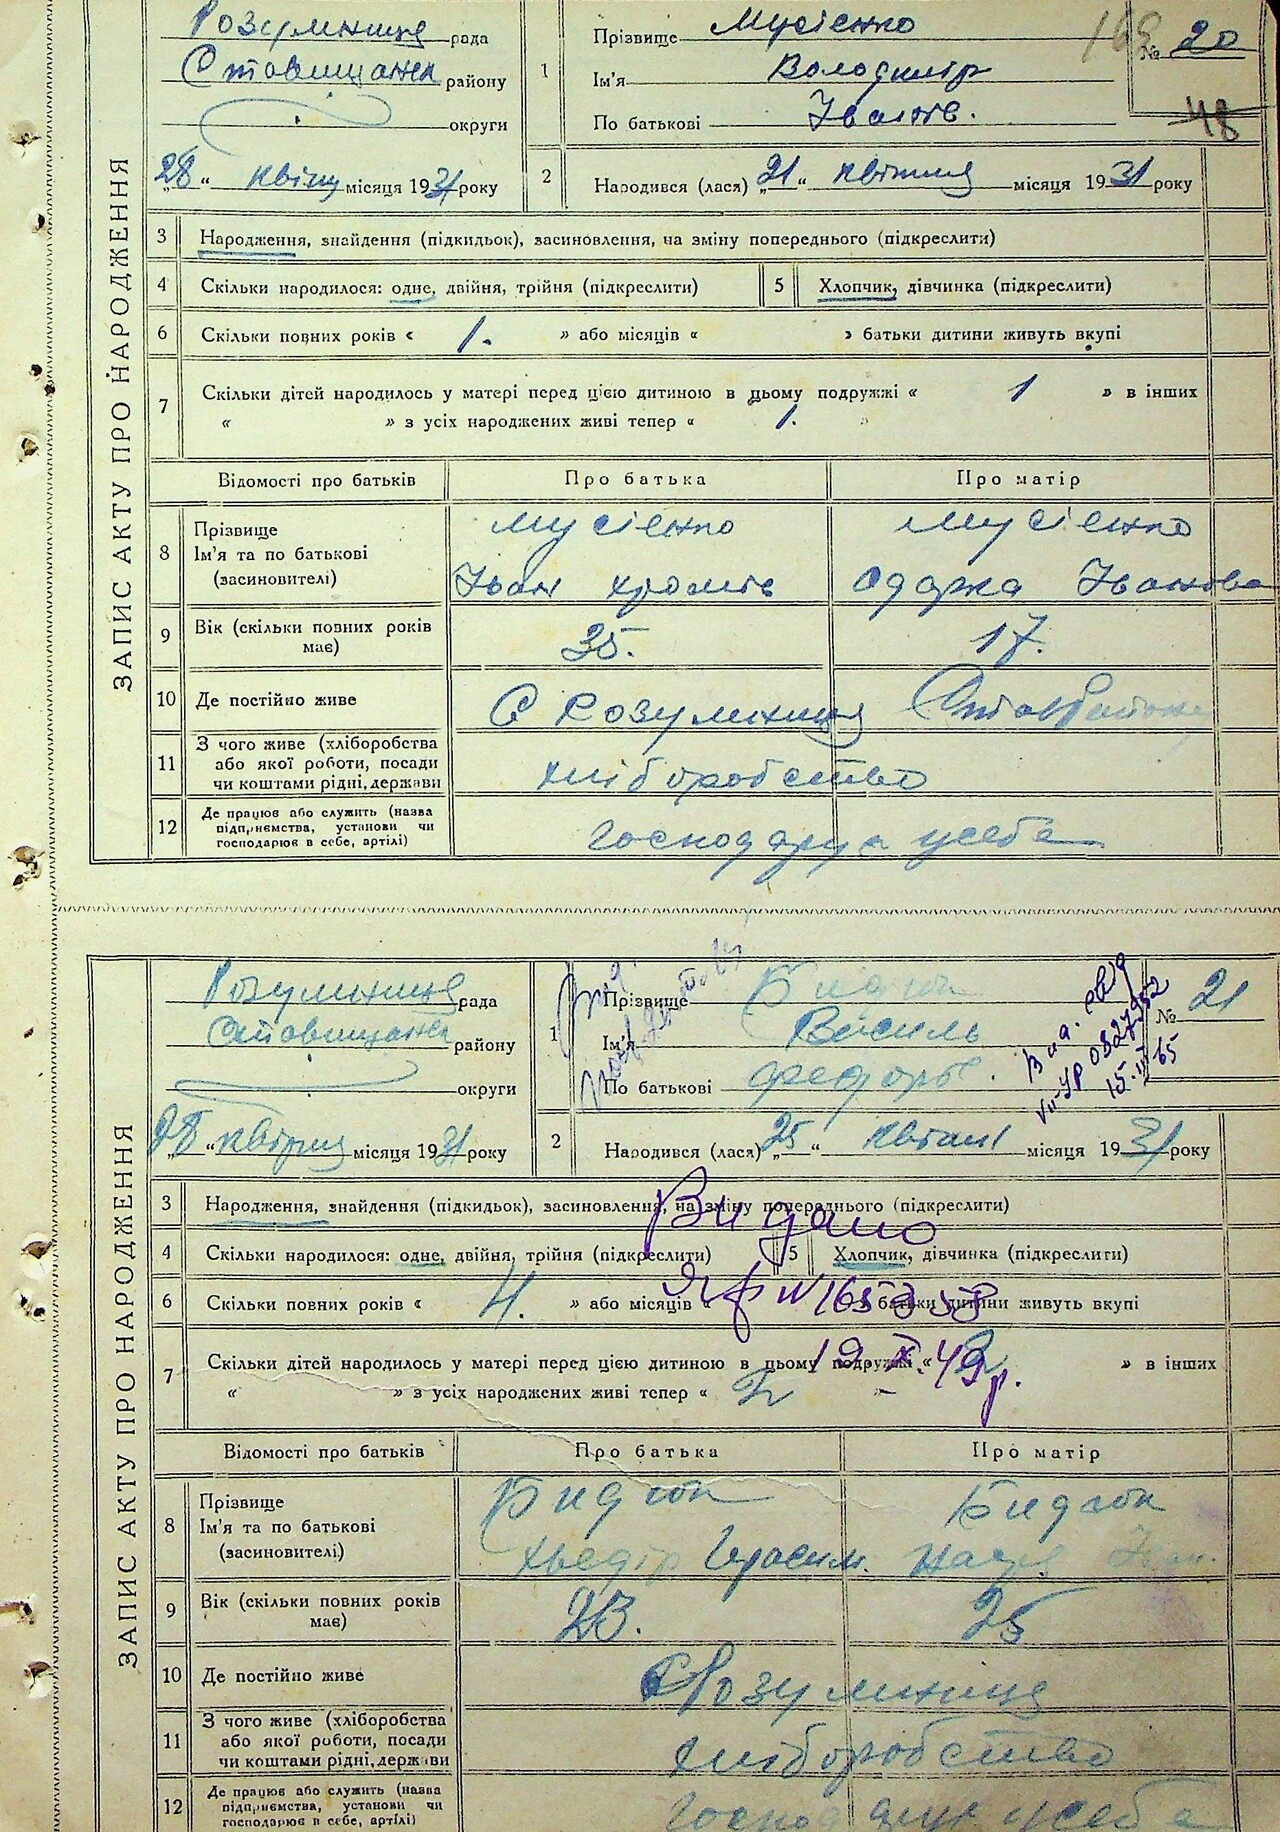 ЗАПИС АКТУ ПРО НАРОДЖЕННЯ
Розумниця рада
Ставищанськ району
округи
„28“ квітн місяця 1931 року
1 Прізвище Мусієнко
Ім'я Володимир
По батькові Іванов.
№ 20
168
48
2 Народився (лася) „21“ квітня місяця 1931 року
3 Народження, знайдення (підкидьок), засиновлення, на зміну попереднього (підкреслити)
4 Скільки народилося: одне, двійня, трійня (підкреслити)
5 Хлопчик, дівчинка (підкреслити)
6 Скільки повних років « 1. » або місяців « » батьки дитини живуть вкупі
7 Скільки дітей народилось у матері перед цією дитиною в цьому подружжі « 1 » в інших
« » з усіх народжених живі тепер « 1. »
Відомості про батьків Про батька Про матір
8 Прізвище
Ім'я та по батькові
(засиновителі)
Мусієнко Мусієнко
Іван Одарка Іванова
9 Вік (скільки повних років
має)
35. 17.
10 Де постійно живе С Розумниця
11 З чого живе (хліборобства
або якої роботи, посади
чи коштами рідні, держави
хліборобство
12 Де працює або служить (назва
підприємства, установи чи
господарює в себе, артілі)
господарує усебе
ЗАПИС АКТУ ПРО НАРОДЖЕННЯ
Розумниця рада
Ставищанськ району
округи
„28“ квітня місяця 1931 року
1 Прізвище
Ім'я Василь
По батькові Федоров.
№ 21
Вид. свід
VII-УР 0827952
15.III 65
2 Народився (лася) „25“ квітня місяця 1931 року
3 Народження, знайдення (підкидьок), засиновлення, на зміну попереднього (підкреслити)
Видано
4 Скільки народилося: одне, двійня, трійня (підкреслити)
5 Хлопчик, дівчинка (підкреслити)
6 Скільки повних років « 4. » або місяців « » батьки дитини живуть вкупі
7 Скільки дітей народилось у матері перед цією дитиною в цьому подружжі « 2 » в інших
« » з усіх народжених живі тепер « 2 »
19.X.49 р.
Відомості про батьків Про батька Про матір
8 Прізвище
Ім'я та по батькові
(засиновителі)
Хведір Герасим.
9 Вік (скільки повних років
має)
23. 25
10 Де постійно живе С Розумниця
11 З чого живе (хліборобства
або якої роботи, посади
чи коштами рідні, держави
хліборобство
12 Де працює або служить (назва
підприємства, установи чи
господарює в себе, артілі)
господарує усебе